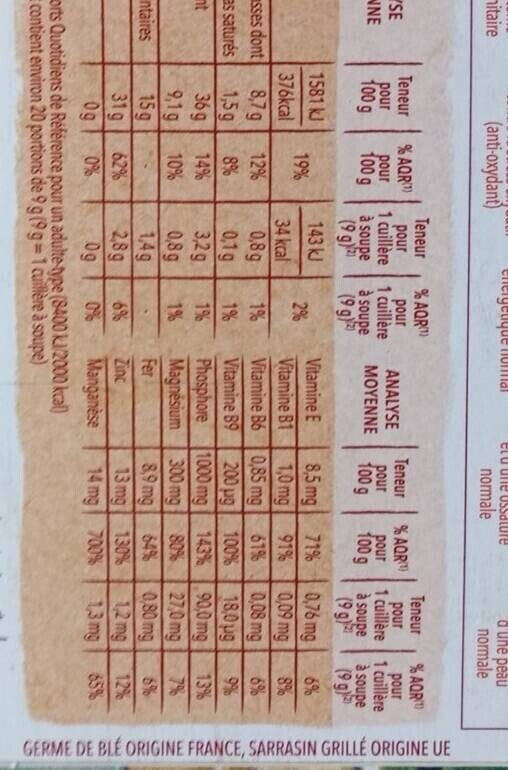 nitaire
(anti-oxydant)
énergétique normal
et d'une ossature
normale
d'une peau
normale
YSE
NNE
Teneur pour 100 g
% AQR(1) pour 100 g
Teneur pour 1 cuillère à soupe (9 g)(2)
% AQR(1) pour 1 cuillère à soupe (9 g)(2)
1581 kJ
376kcal 19% 143 kJ
34 kcal 2%
sses dont 8,7 g 12% 0,8 g 1%
as saturés 1,5 g 8% 0,1 g 1%
36 g 14% 3,2 g 1%
nt 9,1 g 10% 0,8 g 1%
ntaires 15 g - 1,4 g -
31 g 62% 2,8 g 6%
0 g 0% 0 g 0%
ANALYSE MOYENNE
Teneur pour 100 g
% AQR(1) pour 100 g
Teneur pour 1 cuillère à soupe (9 g)(2)
% AQR(1) pour 1 cuillère à soupe (9 g)(2)
Vitamine E 8,5 mg 71% 0,76 mg 6%
Vitamine B1 1,0 mg 91% 0,09 mg 8%
Vitamine B6 0,85 mg 61% 0,08 mg 6%
Vitamine B9 200 µg 100% 18,0 µg 9%
Phosphore 1000 mg 143% 90,0 mg 13%
Magnésium 300 mg 80% 27,0 mg 7%
Fer 8,9 mg 64% 0,80 mg 6%
Zinc 13 mg 130% 1,2 mg 12%
Manganèse 14 mg 700% 1,3 mg 65%
orts Quotidiens de Référence pour un adulte-type (8400 kJ/2000 kcal)
contient environ 20 portions de 9 g (9 g = 1 cuillère à soupe)
GERME DE BLÉ ORIGINE FRANCE, SARRASIN GRILLÉ ORIGINE UE